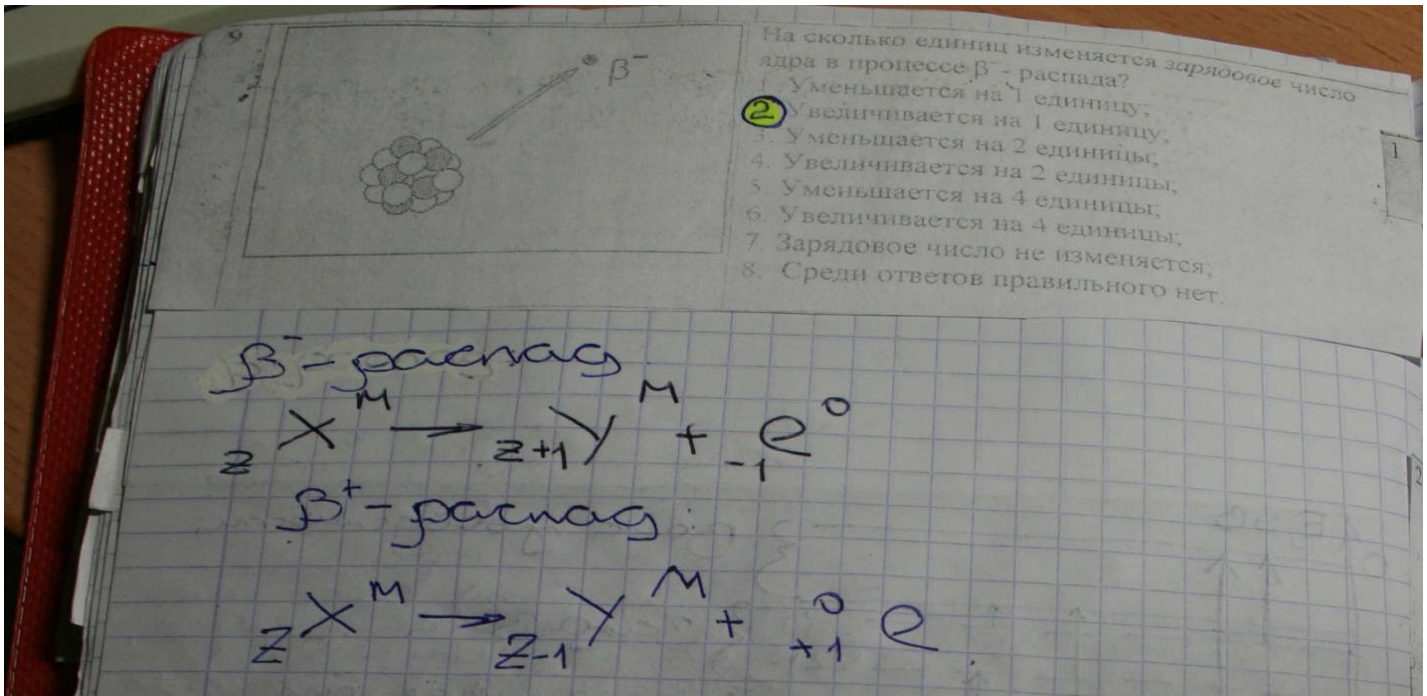 9
β⁻
На сколько единиц изменяется зарядовое число
ядра в процессе β⁻ - распада?
1. Уменьшается на 1 единицу;
2 Увеличивается на 1 единицу;
3. Уменьшается на 2 единицы;
4. Увеличивается на 2 единицы;
5. Уменьшается на 4 единицы;
6. Увеличивается на 4 единицы;
7. Зарядовое число не изменяется;
8. Среди ответов правильного нет.
1
β⁻ - распад
zXᴹ → z+1Yᴹ + -1e⁰
β⁺ - распад:
zXᴹ → z-1Yᴹ + +1⁰e.
2